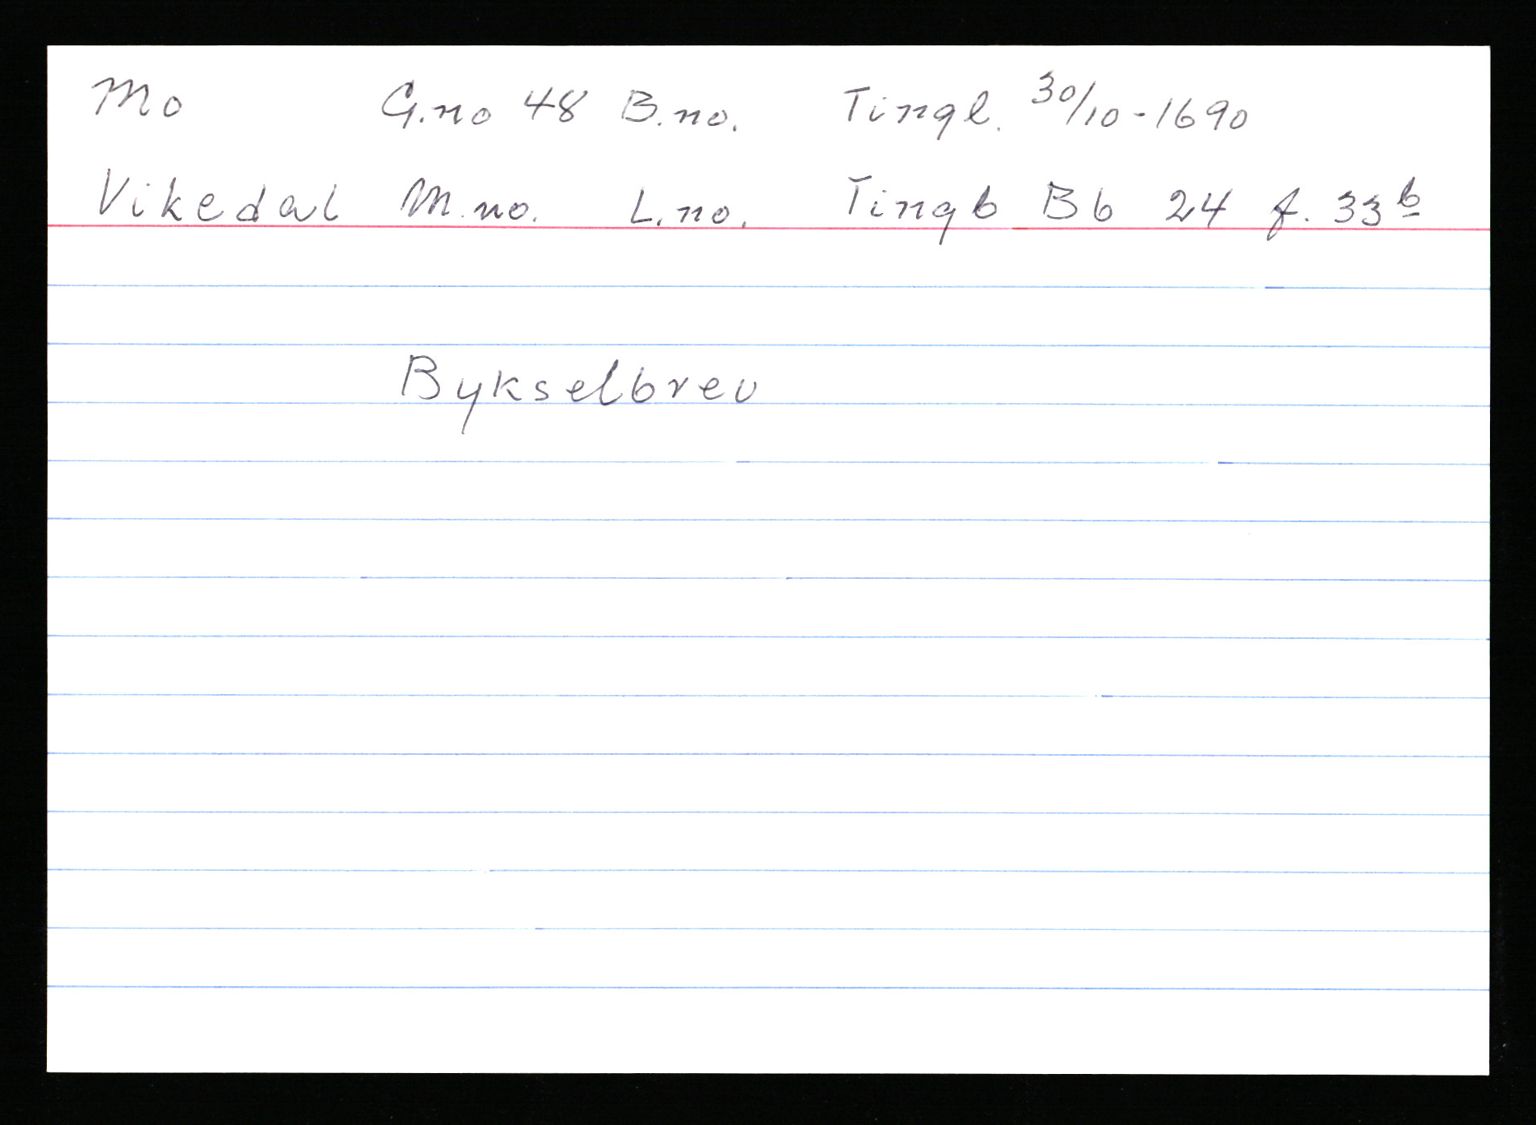 Mo G.no 48 B.no. Tingl. 30/10-1690
Vikedal M.no. L.no. Tingb Bb 24 f. 33b
Bykselbrev